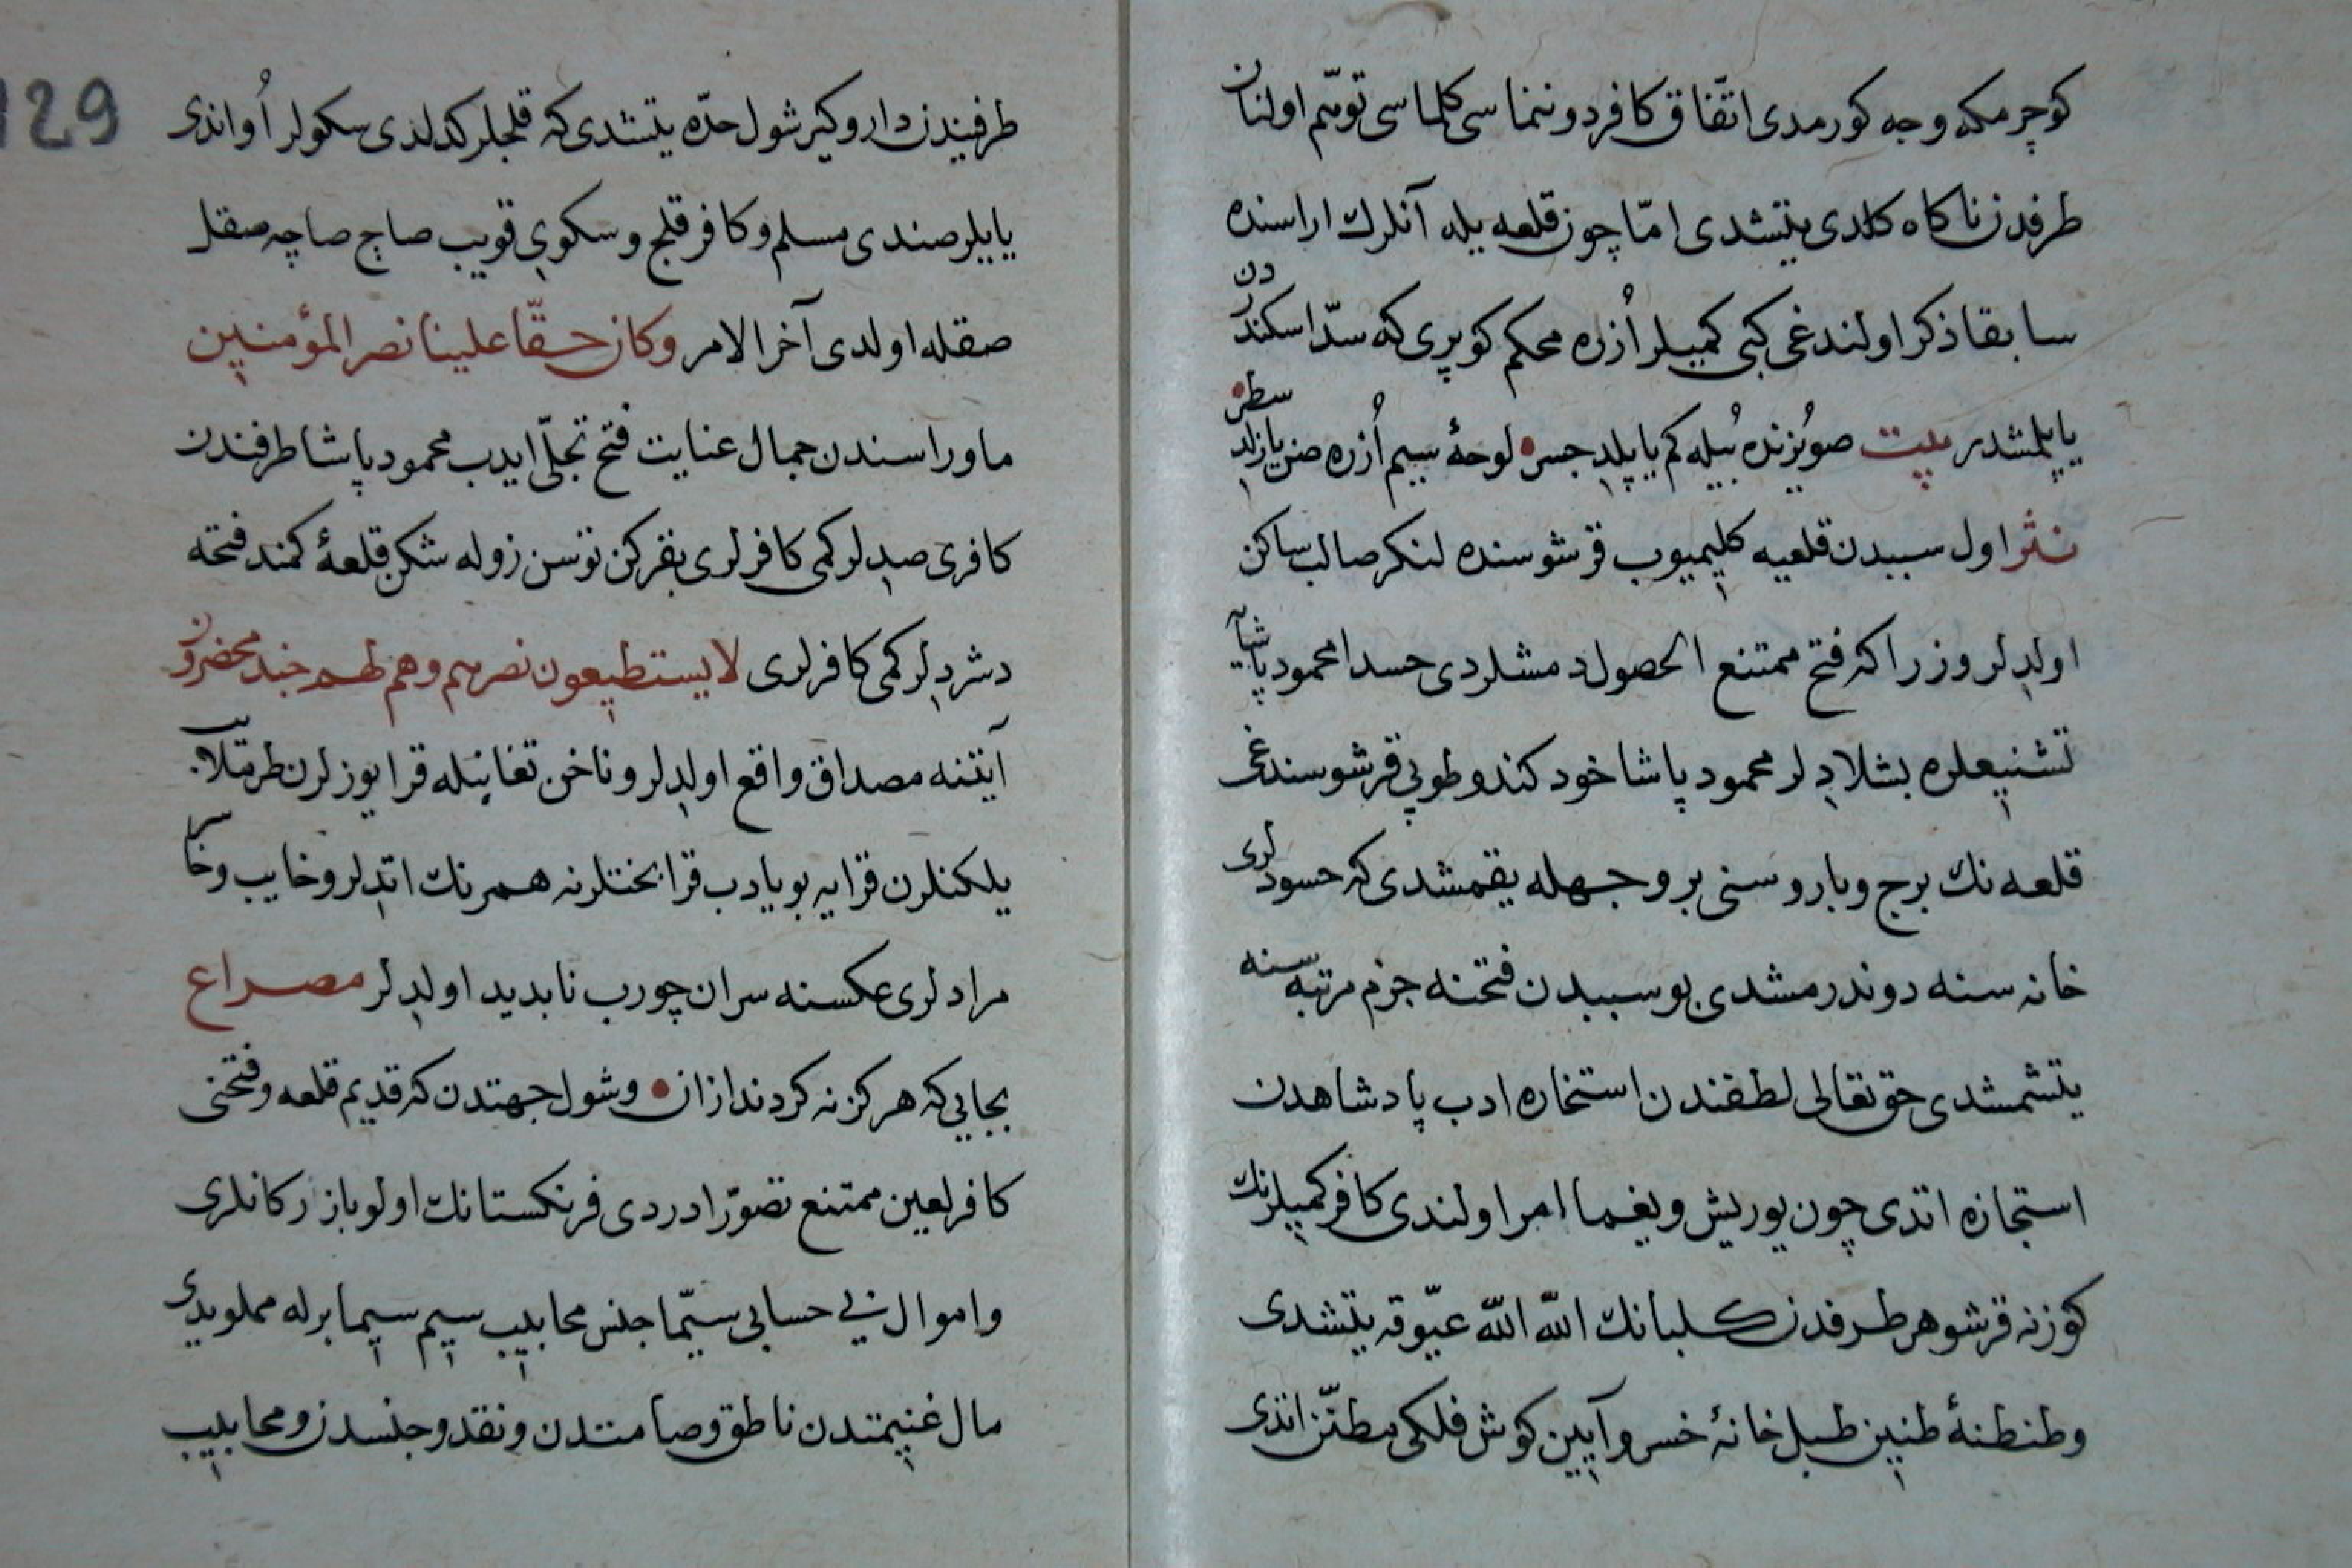 كوچرمكه وجه كورمدى اتّفاق كافر دوننماسى كلماسى توهّم اولنان
طرفدن ناكاه كلدى يتشدى امّا چون قلعه يله آنلرك اراسنده
سابقا ذكر اولندغى كبى كميلر اُزره محكم كوپرى كه سدّ اسكندردن
ياپلمشدر بيت صو يُزنده بُيله كم ياپلدى جسر لوحهٔ سيم اُزره صن يازلدى سطر
نثر اول سببدن قلعيه كليميوب قرشوسنده لنكر صالب ساكن
اولدلر وزرا كه فتح ممتنع الحصول دمشلردى حسدا محمود پاشايه
تشنيعلره بشلادلر محمود پاشا خود كندو طوپى قرشوسندغى
قلعه نك برج و باروسنى بر وجهله يقمشدى كه حسودلرى
خانه سنه دوندرمشدى بو سببدن فتحنه جزم مرتبه سنه
يتشمشدى حق تعالى لطفندن استخاره ادب پادشاهدن
استجازه اتدى چون يوريش و يغما امر اولندى كافر كميلرنك
كوزنه قرشو هر طرفدن كلبانك الله الله عيّوقه يتشدى
وطنطنهٔ طنين طبل خانهٔ خسرو آيين كوش فلكى مطنّن اتدى
129
طرفيندن دار وكير شول حدّه يتشدى كه قلجلر كدلدى سكولر اُواندى
يايلر صندى مسلم و كافر قلج و سكوى قويب صاج صاچه صقل
صقله اولدى آخر الامر وكان حقّا علينا نصر المؤمنين
ماوراسندن جمال عنايت فتح تجلّى ايدب محمود پاشا طرفندن
كافرى صدلر كمى كافرلرى بقركن توسن زوله شكن قلعهٔ كمند فتحه
دشردلر كمى كافرلرى لا يستطيعون نصرهم وهم لهم جند محضرون
آيتنه مصداق واقع اولدلر و ناخن تغابنله قرا يوزلرن طرمتلايب
يلكنلرن قرايه بويادب قرا بختلرنه همرنك اتدلر و خايب و خاسر
مرادلرى عكسنه سران چورب نابديد اولدلر مصراع
بجايى كه هركز نه كردند ازان وشول جهتدن كه قديم قلعه و فتحنى
كافر لعين ممتنع تصوّر ادردى فرنكستانك اولو بازركانلرى
واموال بى حسابى سيّما جنس محابيب سيم سيما برله مملويدى
مال غنيمتدن ناطق و صامتدن و نقد و جنسدن و محابيب